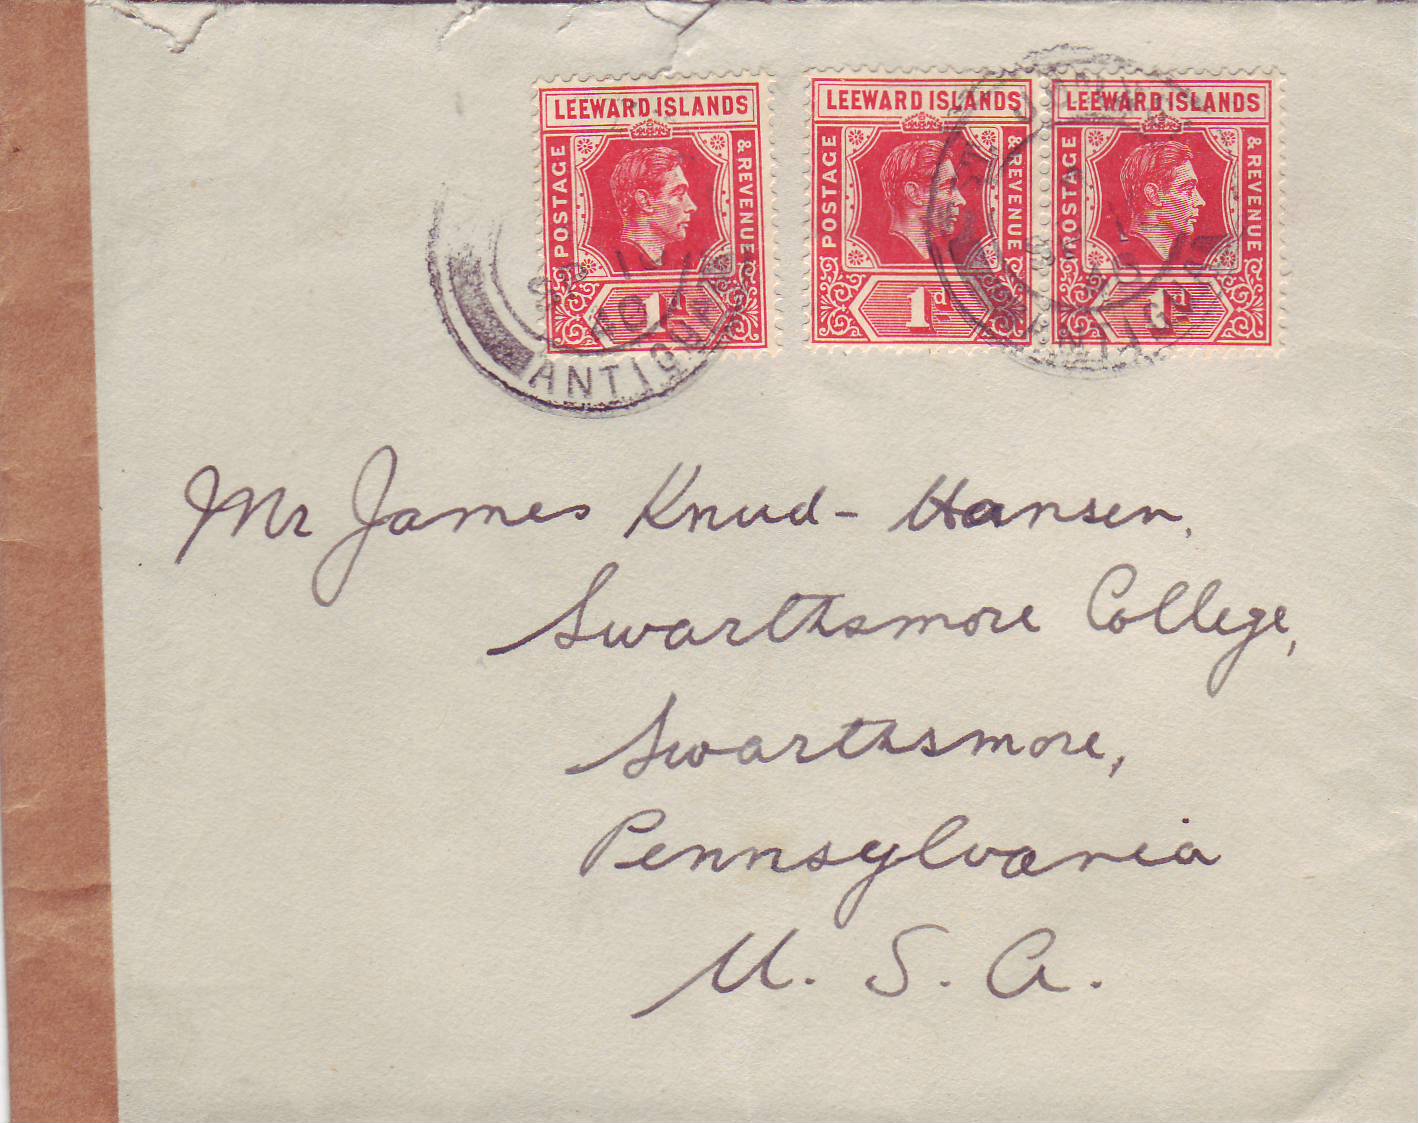 LEEWARD ISLANDS
POSTAGE
& REVENUE
1d
LEEWARD ISLANDS
POSTAGE
& REVENUE
1d
LEEWARD ISLANDS
POSTAGE
& REVENUE
1d
SP 10
40
ANTIGUA
ANTIGUA
Mr James Knud-Hansen,
Swarthsmore College,
Swarthsmore,
Pennsylvania
U. S. A.